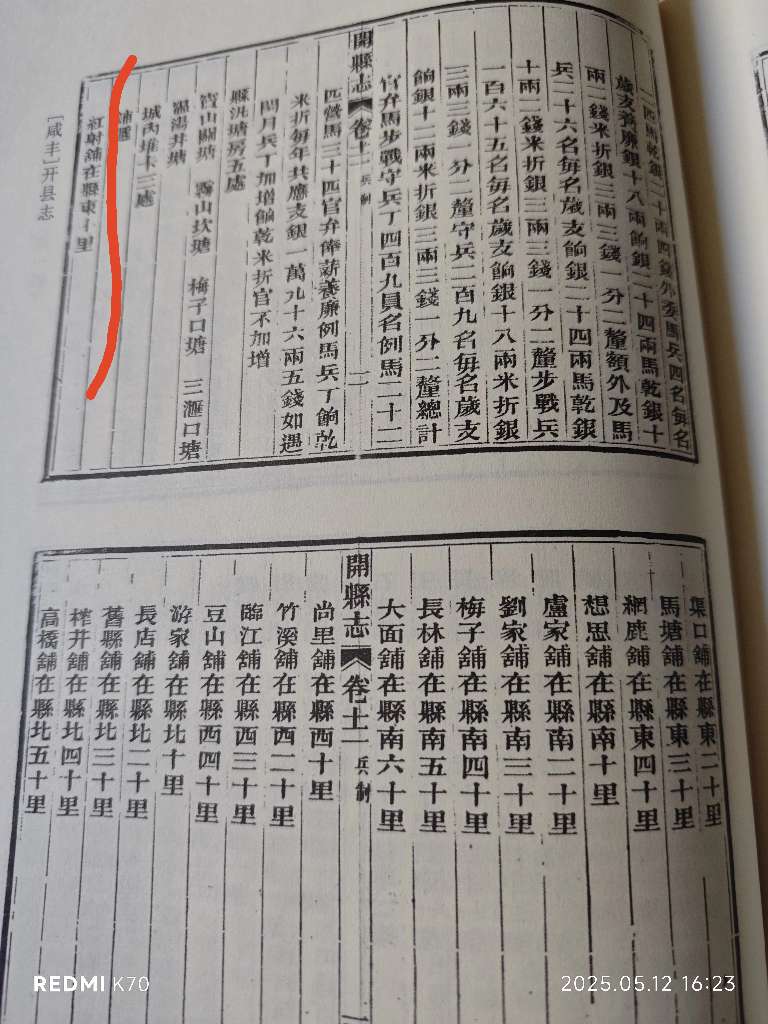 一匹馬乾銀二十四兩四錢外委馬兵四名每名
歲支養廉銀十八兩餉銀二十四兩馬乾銀十
兩二錢米折銀三兩三錢一分二釐額外及馬
兵二十六名每名歲支餉銀二十四兩馬乾銀
十兩二錢米折銀三兩三錢一分二釐步戰兵
一百六十五名每名歲支餉銀十八兩米折銀
三兩三錢一分二釐守兵二百九名每名歲支
餉銀十二兩米折銀三兩三錢一分二釐總計
官弁馬步戰守兵丁四百九員名例馬二十二
開縣志
卷十二
兵制
二
匹營馬三十四官弁俸薪養廉例馬兵丁餉乾
米折每年共應支銀一萬九十六兩五錢如遇
閏月兵丁加增餉乾米折官不加增
縣汛塘房五處
霸山關塘 霧山坎塘 梅子口塘 三滙口塘
溫湯井塘
城內堆卡三處
舖遞
在縣東十里
[咸丰]开县志
渠口舖在縣東二十里
馬塘舖在縣東三十里
網鹿舖在縣東四十里
想思舖在縣南十里
盧家舖在縣南二十里
劉家舖在縣南三十里
梅子舖在縣南四十里
長林舖在縣南五十里
大面舖在縣南六十里
開縣志
卷十二
兵制
尚里舖在縣西十里
竹溪舖在縣西二十里
臨江舖在縣西三十里
豆山舖在縣西四十里
游家舖在縣北十里
長店舖在縣北二十里
舊縣舖在縣北三十里
榨井舖在縣北四十里
高橋舖在縣北五十里
REDMI K70
2025.05.12 16:23